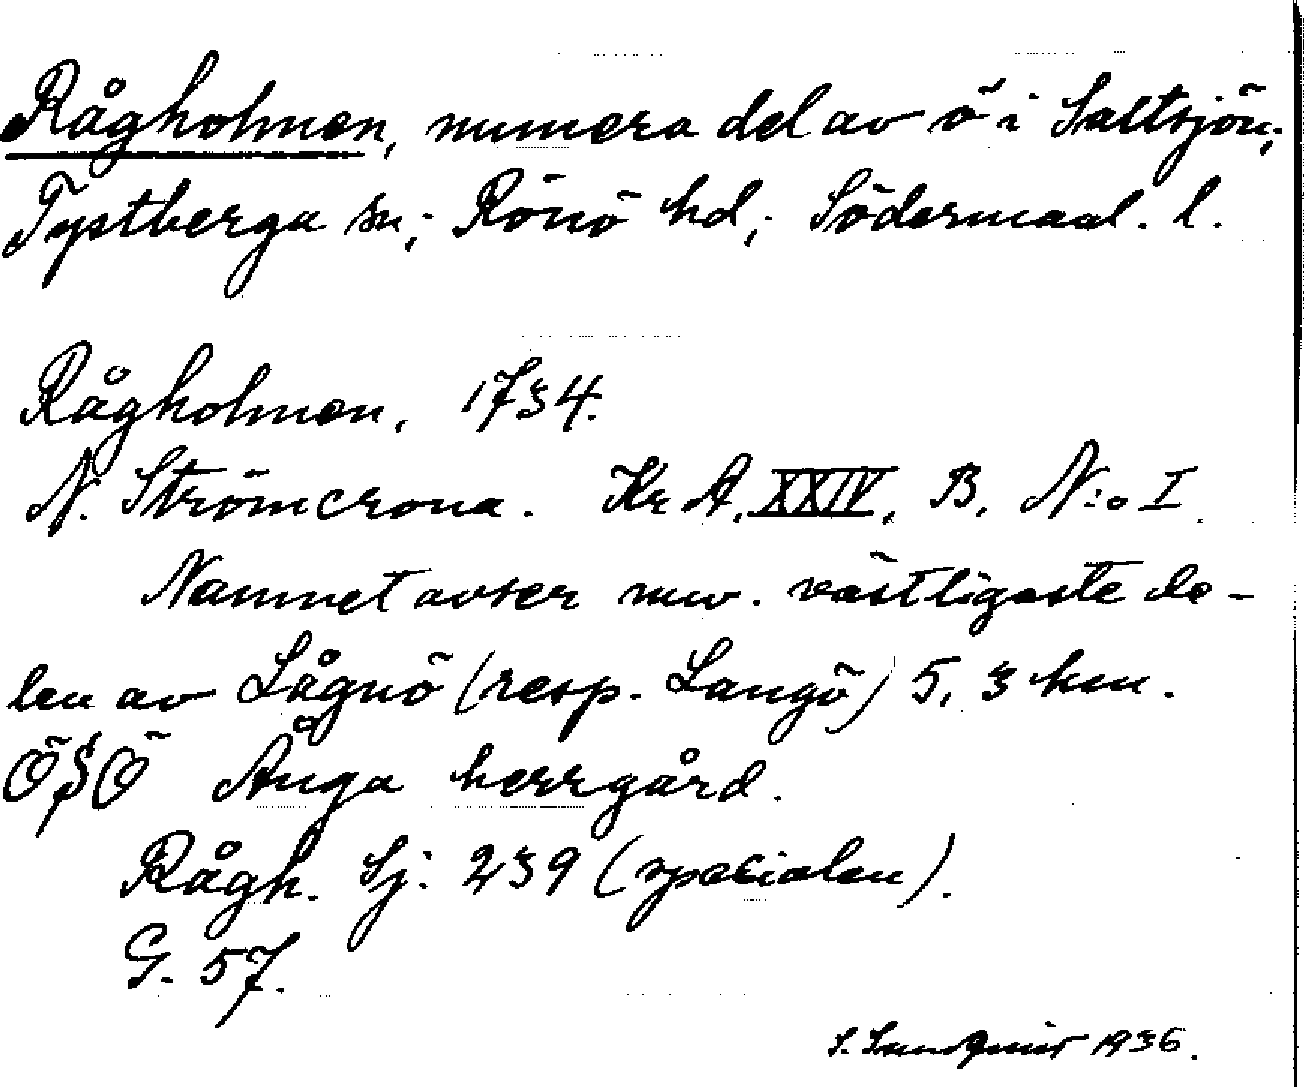 Rågholmen, numera del av ö i Saltsjön;
Tystberga sn; Rönö hd; Södermanl. l.
Rågholmen, 1734.
N. Strömcrona. Kr A. XXIV, B. N:o I.
Namnet avser nuv. västligaste de-
len av Långö (resp. Långö) 5,3 km.
ÖSÖ Ånga herrgård.
Rågh. Sj: 239 (specialen).
G. 57.
S. Lundqvist 1936.